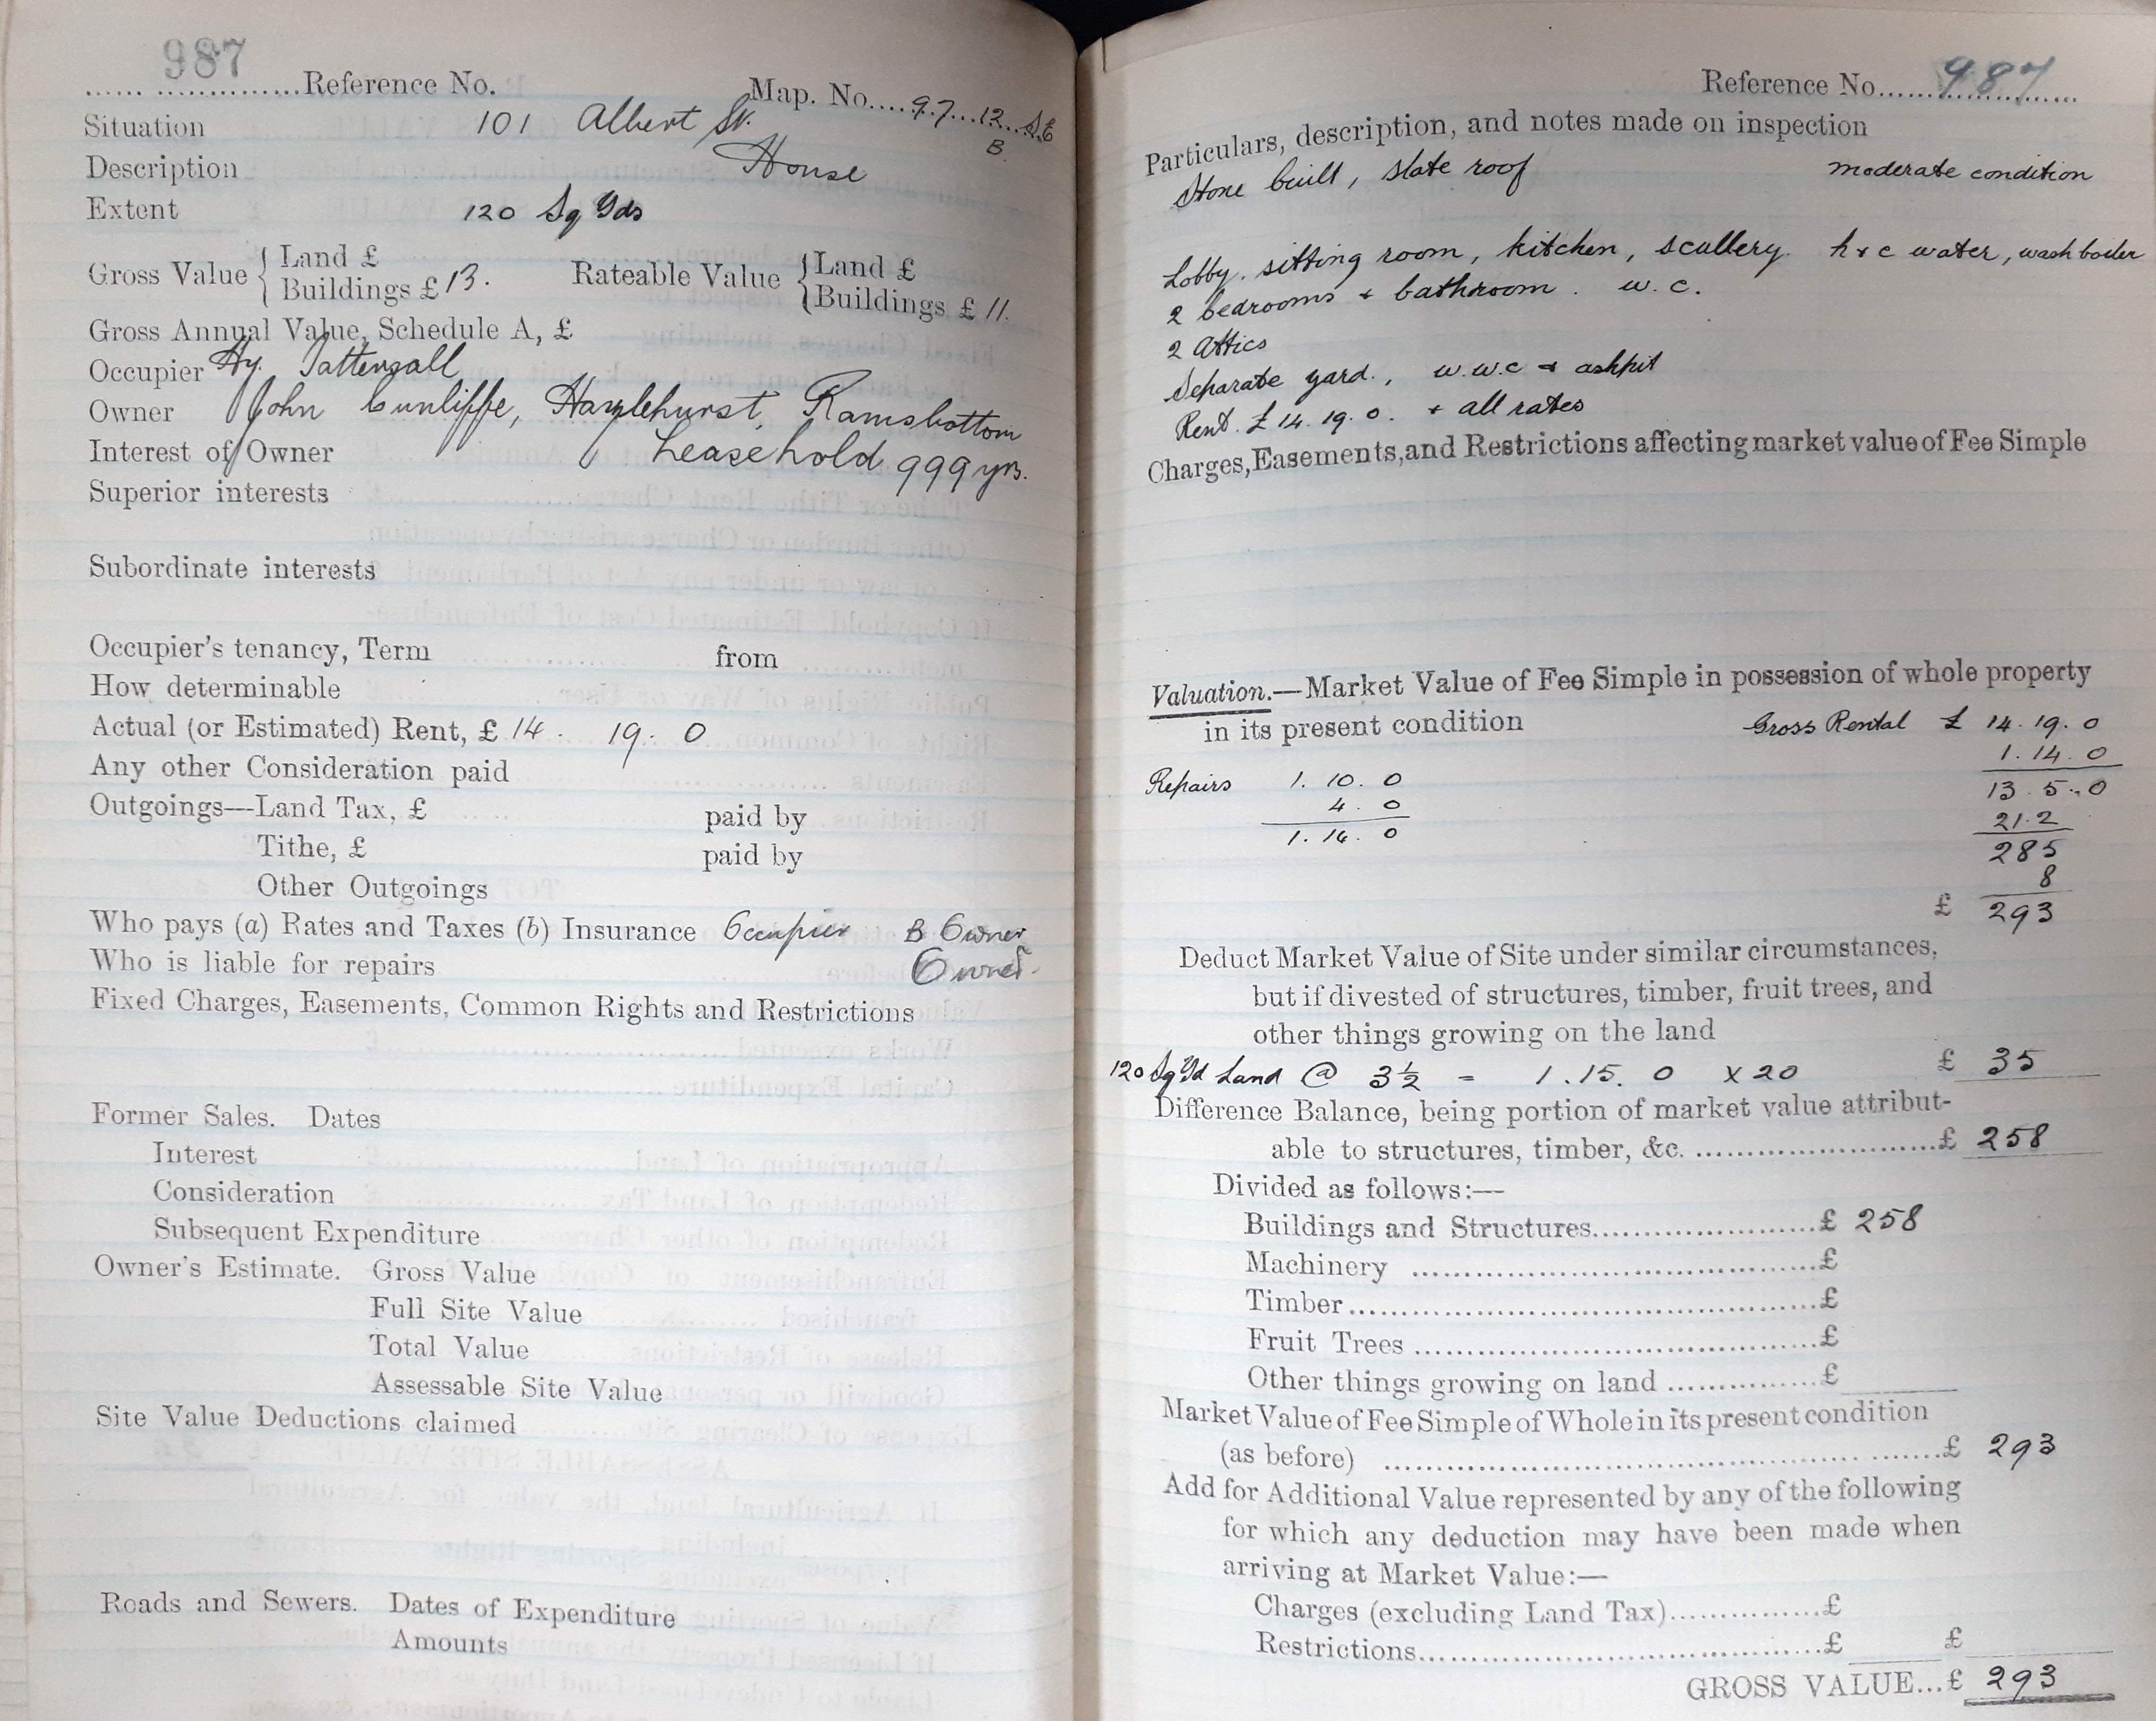 987
Reference No. Map. No. 97 12 S.E
B.
Situation 101 Albert St.
Description House
Extent 120 Sq Yds
Gross Value { Land £
Buildings £ 13. Rateable Value { Land £
Buildings £ 11.
Gross Annual Value, Schedule A, £
Occupier Hy. Tattersall
Owner John Cunliffe, Hazlehurst, Ramsbottom
Interest of Owner Leasehold 999 yrs.
Superior interests
Subordinate interests
Occupier's tenancy, Term from
How determinable
Actual (or Estimated) Rent, £ 14. 19. 0
Any other Consideration paid
Outgoings—Land Tax, £ paid by
Tithe, £ paid by
Other Outgoings
Who pays (a) Rates and Taxes (b) Insurance Occupier B Owner
Who is liable for repairs Owner
Fixed Charges, Easements, Common Rights and Restrictions
Former Sales. Dates
Interest
Consideration
Subsequent Expenditure
Owner's Estimate. Gross Value
Full Site Value
Total Value
Assessable Site Value
Site Value Deductions claimed
Roads and Sewers. Dates of Expenditure
Amounts
Reference No. 987
Particulars, description, and notes made on inspection
Stone built, slate roof moderate condition
Lobby. sitting room, kitchen, scullery. h & c water, wash boiler
2 bedrooms + bathroom. w.c.
2 Attics
Separate yard., w.w.c + ashpit
Rent. £ 14. 19. 0. + all rates
Charges, Easements, and Restrictions affecting market value of Fee Simple
Valuation.—Market Value of Fee Simple in possession of whole property
in its present condition Gross Rental £ 14. 19. 0
1. 14. 0
Repairs 1. 10. 0 13. 5. 0
4. 0 21.2
1. 14. 0 285
8
£ 293
Deduct Market Value of Site under similar circumstances,
but if divested of structures, timber, fruit trees, and
other things growing on the land
120 Sq Yd Land @ 3½ = 1. 15. 0 x 20 £ 35
Difference Balance, being portion of market value attribut-
able to structures, timber, &c. £ 258
Divided as follows:—
Buildings and Structures £ 258
Machinery £
Timber £
Fruit Trees £
Other things growing on land £
Market Value of Fee Simple of Whole in its present condition
(as before) £ 293
Add for Additional Value represented by any of the following
for which any deduction may have been made when
arriving at Market Value:—
Charges (excluding Land Tax) £
Restrictions £ £
GROSS VALUE...£ 293